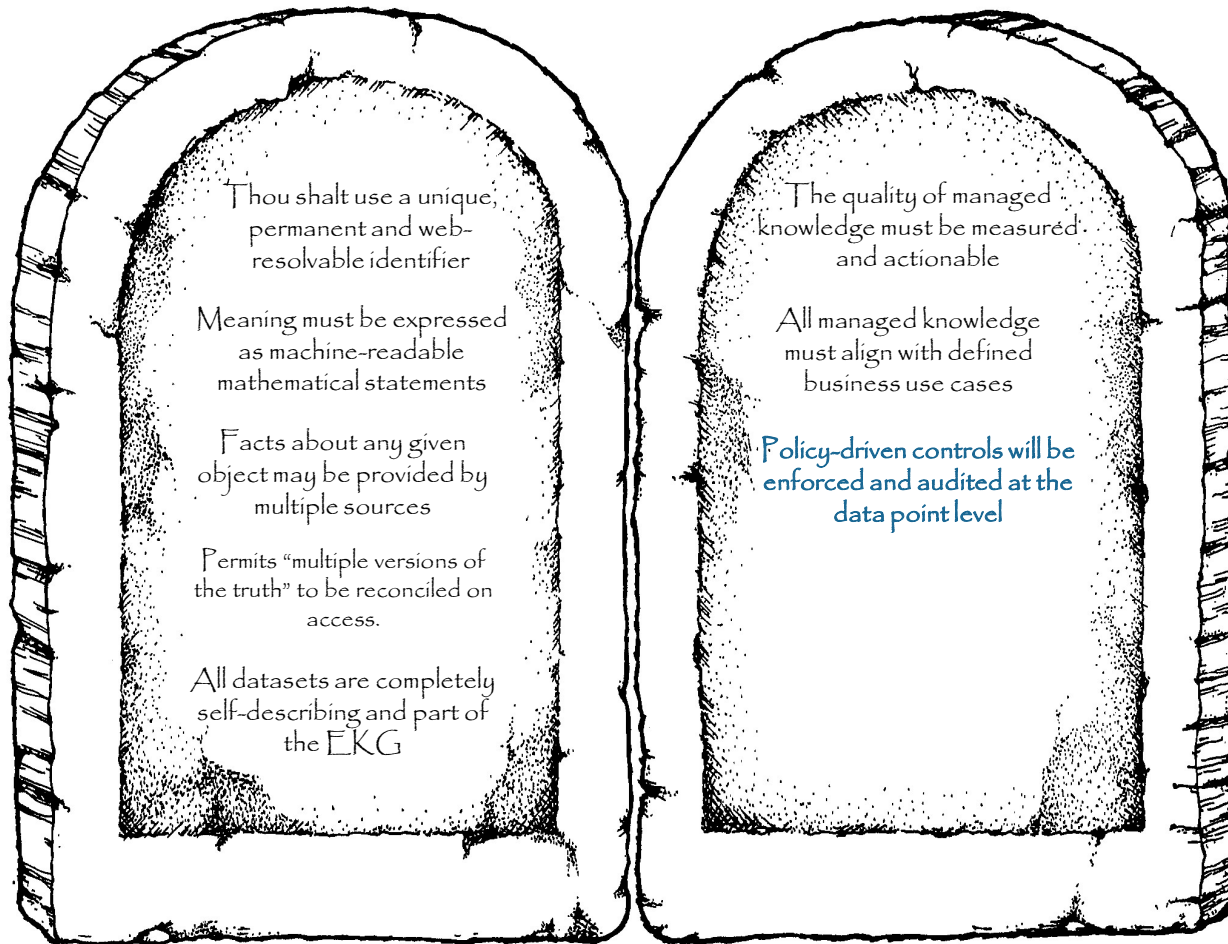 Thou shalt use a unique,
permanent and web-
resolvable identifier
Meaning must be expressed
as machine-readable
mathematical statements
Facts about any given
object may be provided by
multiple sources
Permits “multiple versions of
the truth” to be reconciled on
access.
All datasets are completely
self-describing and part of
the EKG
The quality of managed
knowledge must be measured
and actionable
All managed knowledge
must align with defined
business use cases
Policy-driven controls will be
enforced and audited at the
data point level